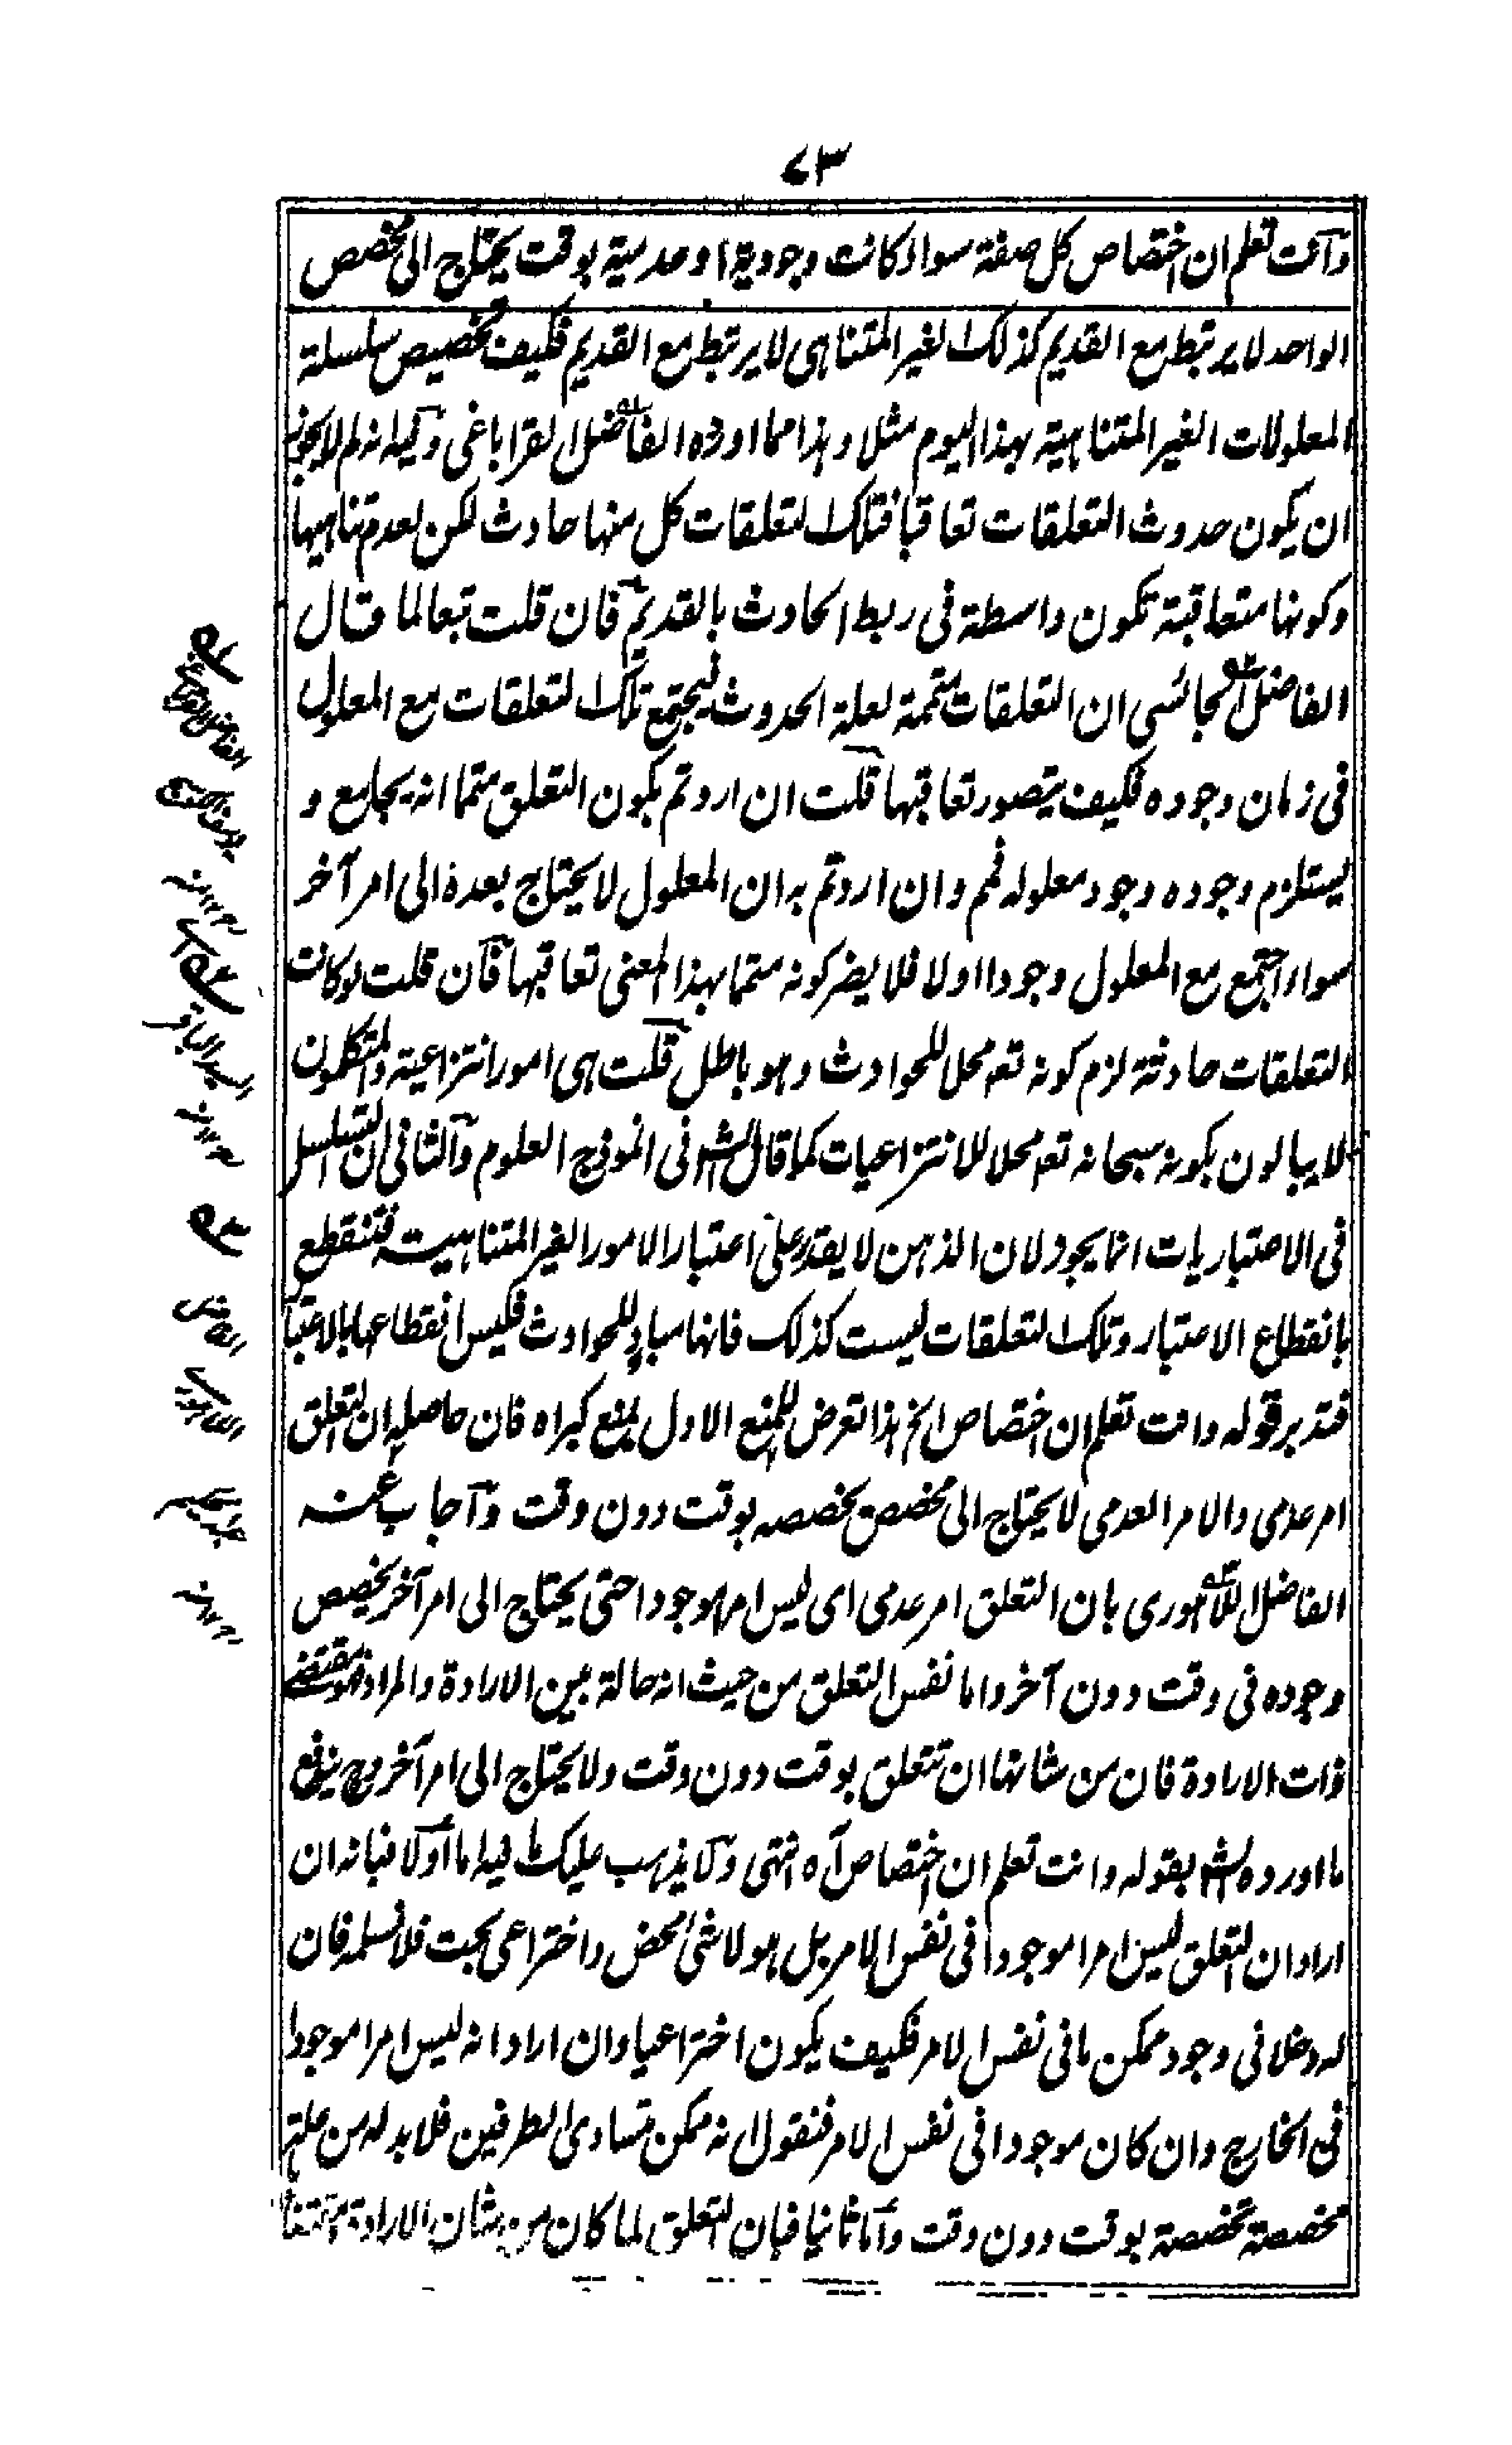 ٧٣
وانت تعلم ان اختصاص كل صفة سواء كانت وجودية او عدمية بوقت يحتاج الى مخصص
الواحد لا يرتبط مع القديم كذلك الغير المتناهى لا يرتبط مع القديم فكيف تخصيص سلسلة
المعلولات الغير المتناهية بهذا اليوم مثلا وهذا مما اورده الفاضل القراباغى وفيه انه لم لا يجوز
ان يكون حدوث التعلقات تعاقبا فتلك التعلقات كل منها حادث لكن لعدم تناهيها
وكونها متعاقبة تكون واسطة فى ربط الحادث بالقديم فان قلت تبعا لما قال
الفاضل ان التعلقات متممة لعلة الحدوث ليجتمع تلك التعلقات مع المعلول
فى زمان وجوده فكيف يتصور تعاقبها قلت ان اردتم بكون التعلق متمما انه يجامع و
يستلزم وجوده وجود معلوله فمم وان اردتم به ان المعلول لا يحتاج بعده الى امر آخر
سواء اجتمع مع المعلول وجودا اولا فلا يضر كونه متمما بهذا المعنى تعاقبها فان قلت لو كانت
التعلقات حادثة لزم كونه تعم محل للحوادث وهو باطل قلت هى امور انتزاعية والمتكلمون
لا يبالون بكونه سبحانه تعم محلا للانتزاعيات كما قال الش فى انموذج العلوم والثانى ان التسلسل
فى الاعتباريات انما يجوز لان الذهن لا يقدر على اعتبار الامور الغير المتناهية فتنقطع
بانقطاع الاعتبار وتلك التعلقات ليست كذلك فانها مباد للحوادث فليس انقطاعها بالاعتبا
فتدبر قوله وانت تعلم ان اختصاص الخ هذا تعرض للمنع الاول بمنع كبراه فان حاصله ان التعلق
امر عدمى والامر العدمى لا يحتاج الى مخصص يخصصه بوقت دون وقت واجاب عنه
الفاضل اللاهورى بان التعلق امر عدمى اى ليس امرا موجودا حتى يحتاج الى امر آخر يخصص
وجوده فى وقت دون آخر واما نفس التعلق من حيث انه حالة بين الارادة والمراد فهو مقتضى
ذات الارادة فان من شانها ان تتعلق بوقت دون وقت ولا يحتاج الى امر آخر وح يندفع
ما اورده الش بقوله وانت تعلم ان اختصاص آه انتهى ولا يذهب عليك ما فيه اما اولا فبانه ان
اراد ان التعلق ليس امرا موجودا فى نفس الامر بل هو لا شئ محض واختراعى بحت فلا نسلمه فان
له دخلا فى وجود ممكن ما فى نفس الامر فكيف يكون اختراعيا وان اراد انه ليس امرا موجودا
فى الخارج وان كان موجودا فى نفس الامر فنقول انه ممكن متساوى الطرفين فلا بد له من علة
مخصصة تخصصة بوقت دون وقت واما ثانيا فبان التعلق لما كان من شان الارادة
السيد الباقر
١٢ منه
الفاضل
اللاهورى
عبد الحكيم
١٢ منه